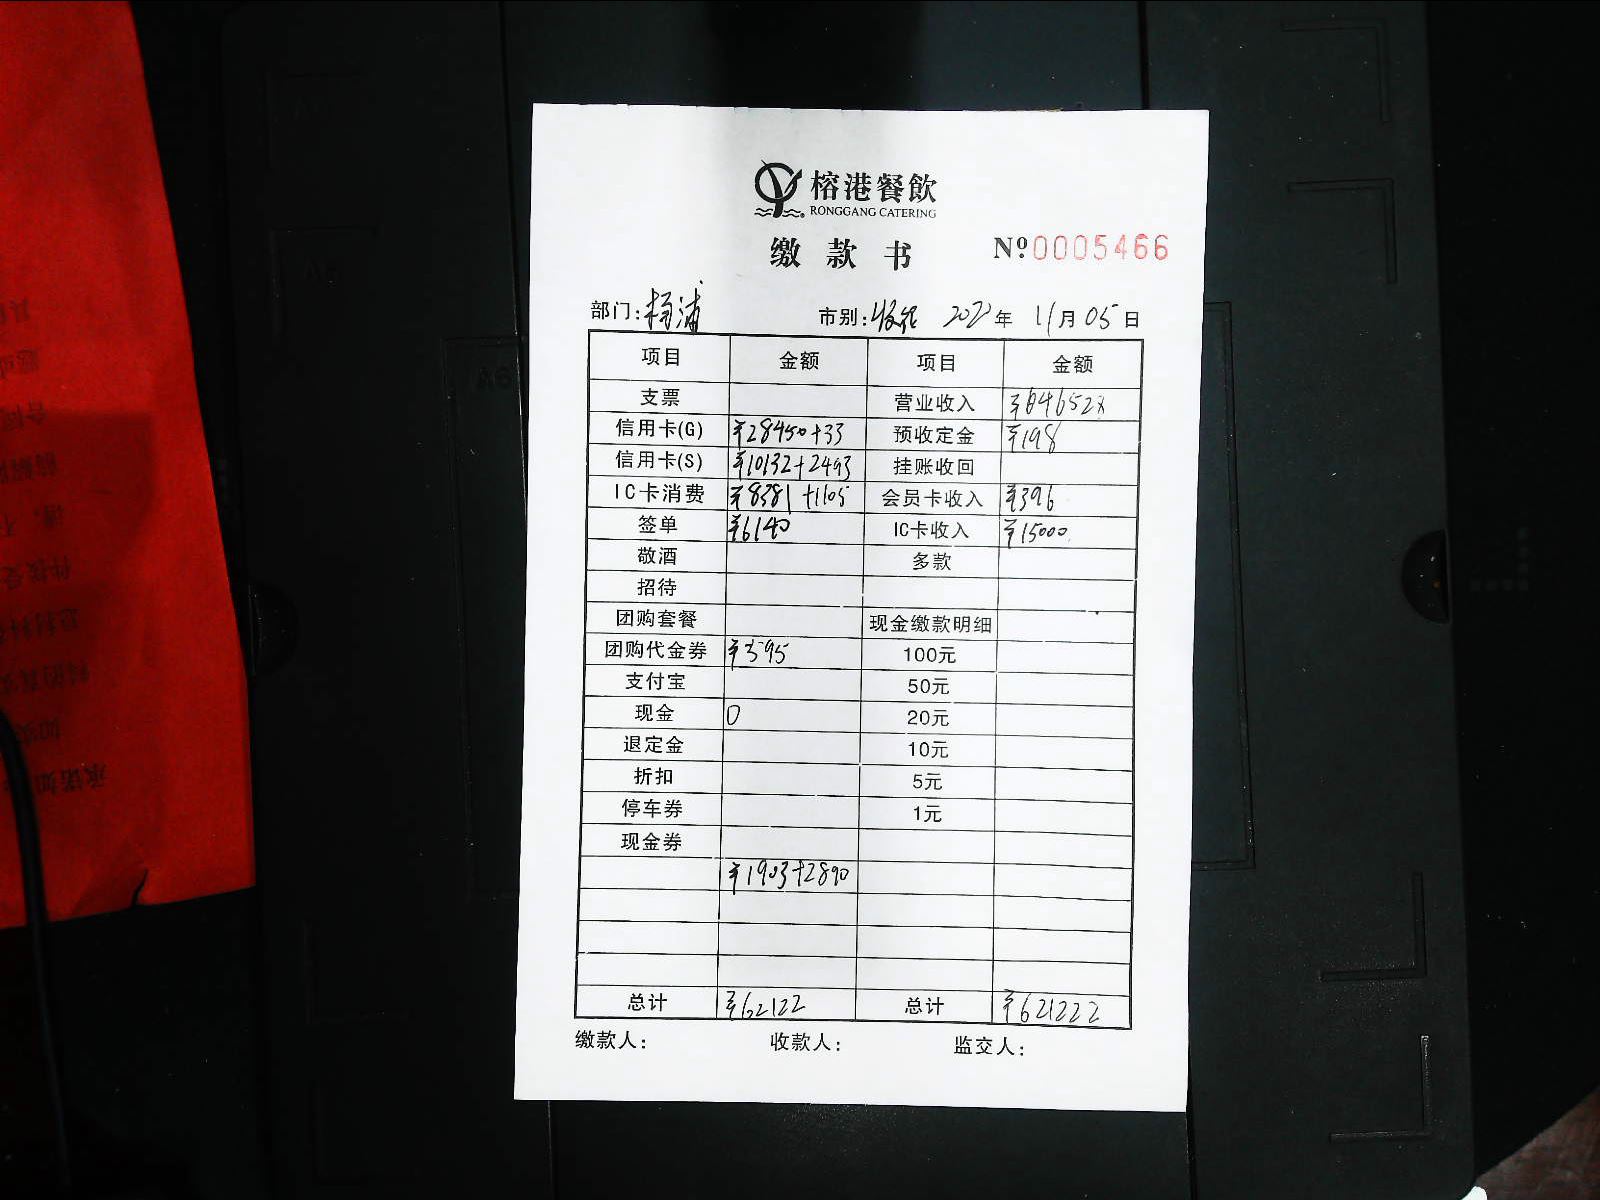 榕港餐飲
RONGGANG CATERING
缴款书 №0005466
部门:杨浦 市别: 年 11月05日
项目 金额 项目 金额
支票 营业收入
信用卡(G) ¥28450+33 预收定金 ¥198
信用卡(S) ¥10132+2493 挂账收回
IC卡消费 ¥8381+1105 会员卡收入 ¥396
签单 ¥6140 IC卡收入 ¥15000
敬酒 多款
招待
团购套餐 现金缴款明细
团购代金券 ¥595 100元
支付宝 50元
现金 0 20元
退定金 10元
折扣 5元
停车券 1元
现金券
¥1903+2890
总计 ¥62122 总计 ¥621222
缴款人: 收款人: 监交人: